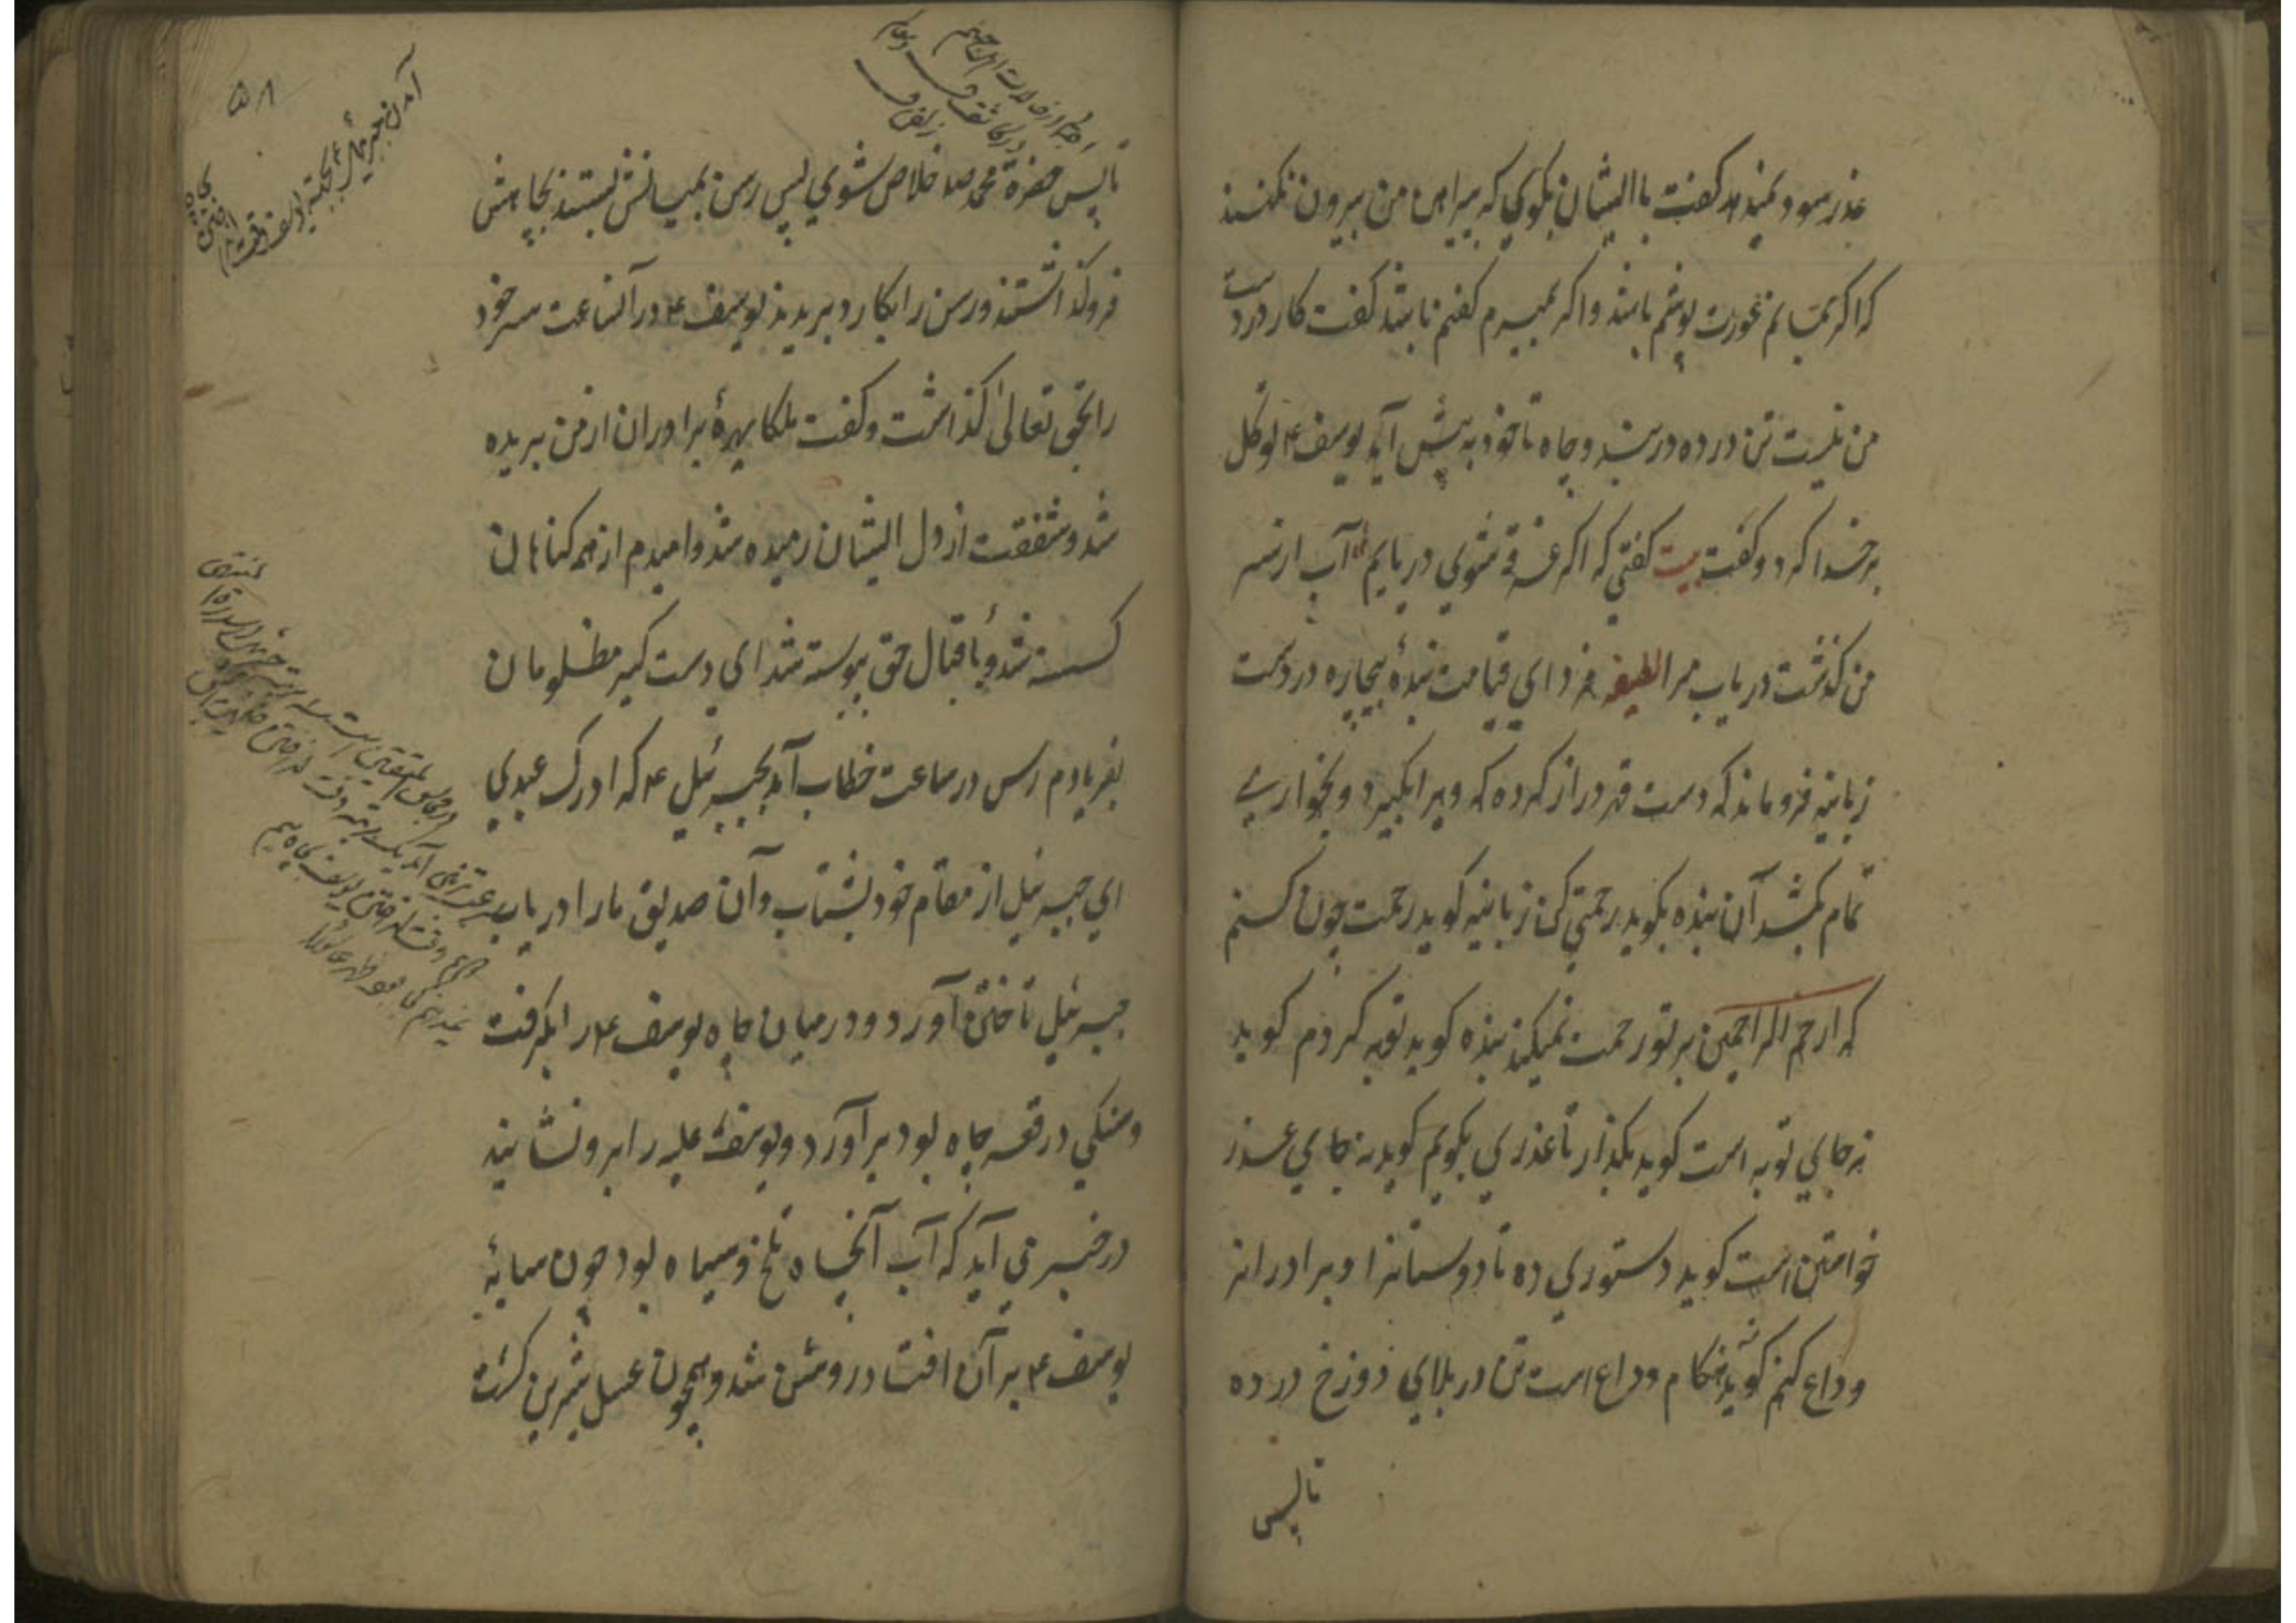 عذر سود نمیدهد کفت با ایشان بکوی که پیراهن من بیرون نکنند
که اکر بمانم عورت پوشم باشد و اکر بمیرم کفنم باشد کفت کار در دست
من نیست تن در ده در بند و چاه تا خود چه پیش آید یوسف ع توکل
بر خدا کرد و کفت بیت کفتی که اکر غرقه شوی دریابم آب از سر
من کذشت دریاب مرا لطیفه فردای قیامت بندهٔ بیچاره در دست
زبانیه فروماند که دست قهر دراز کرده که ویرا بکیرد و بخواریی
تمام بکشد آن بنده بکوید رحمتی کن زبانیه کوید رحمت چون کنم
که ارحم الراحمین بر تو رحمت نمیکند بنده کوید توبه کردم کوید
نه جای توبه است کوید بکذار تا عذری بکویم کوید نه جای عذر
خواستن است کوید دستوری ده تا دوستانرا و برادرانرا
وداع کنم کوید نه هنکام وداع است تن در بلای دوزخ در ده
تا پس
۵۸
تا پس حضرة محمد صلعم خلاص شوی پس رسن بمیانش بستند بچاهش
فروکذاشتند و رسن را بکارد بریدند یوسف ع در آنساعت سر خود
را بحق تعالی کذاشت و کفت ملکا بهرهٔ برادران از من بریده
شد و شفقت از دل ایشان رمیده شد و امیدم از همه کنعانان
کسسته شد و باقبال حق پیوسته شد ای دست کیر مظلومان
بفریادم رس در ساعت خطاب آمد بجبرئیل ع که ادرک عبدی
ای جبرئیل از مقام خود بشتاب و آن صدیق ما را دریاب
جبرئیل تاختن آورد و در میان چاه یوسف ع را بکرفت
و سنکی در قعر چاه بود برآورد و یوسف علیه را برو نشانید
در خبر می آید که آب آنچاه تلخ و سیاه بود چون سایهٔ
یوسف ع بر آن افتاد روشن شد و همچون عسل شیرین کشت